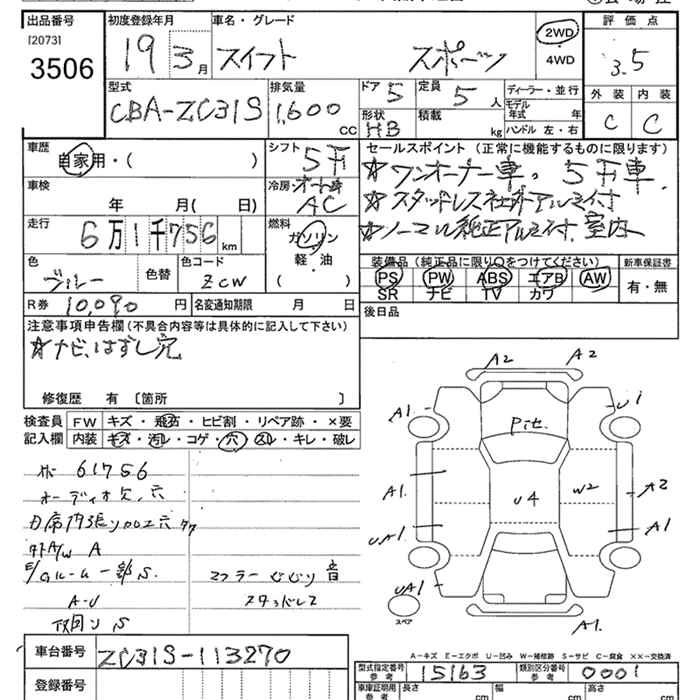 出品番号 初度登録年月 車名・グレード 評価点
[2073]
3506 19 3月 スイフト スポーツ 2WD・4WD 3.5
型式 排気量 ドア 5 定員 5人 ディーラー・並行 外装 内装
CBA-ZC31S 1,600 cc 形状 HB 積載 kg モデル年式 年 C C
ハンドル 左・右
車歴 自家用・( ) シフト 5F セールスポイント (正常に機能するものに限ります)
☆ワンオーナー車。5F車.
車検 年 月( 日) 冷房 オート AC ☆スタッドレス社外アルミ付
走行 6万1千756km 燃料 ガソリン ☆ノーマル純正アルミ付.室内
軽・油
( )
色 ブルー 色替 色コード ZCW 装備品(純正品に限り○をつけてください) 新車保証書
PS PW ABS エアB AW 有・無
SR ナビ TV カワ
R券 10,090円 名変通知期限 月 日 後日品
注意事項申告欄(不具合内容等は具体的に記入して下さい)
☆ナビ、はずし穴
修復歴 有〔箇所 〕
検査員記入欄 FW キズ・飛石・ヒビ割・リペア跡・×要
内装 キズ・汚レ・コゲ・穴・スレ・キレ・破レ
61756
オーディオ欠,穴
A
A-U マフラー 音
スタッドレス
A2 A2
A1 U1
Pit.
A1. U4 W2 A2
UA1 A1
UA1 A1.
スペア
A-キズ E-エクボ U-凹み W-補修跡 S-サビ C-腐食 ××-交換済
車台番号 ZC31S-113270
型式指定番号 参考 15163 類別区分番号 参考 0001
登録番号 車庫証明用 参考 長さ cm 幅 cm 高さ cm